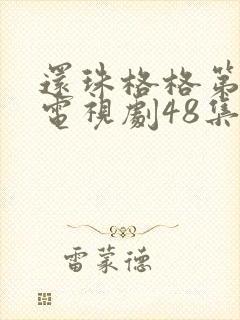 還珠格格第
電視劇48集
雷蒙德